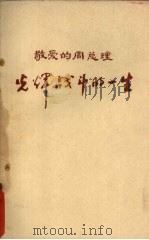 敬爱的周总理
光辉战斗的一生